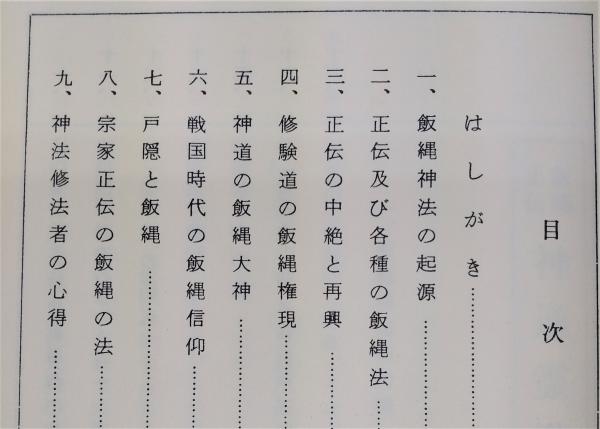 目次
はしがき…………
一、飯縄神法の起源…………
二、正伝及び各種の飯縄法……
三、正伝の中絶と再興…………
四、修験道の飯縄権現…………
五、神道の飯縄大神…………
六、戦国時代の飯縄信仰………
七、戸隠と飯縄……………
八、宗家正伝の飯縄の法………
九、神法修法者の心得…………